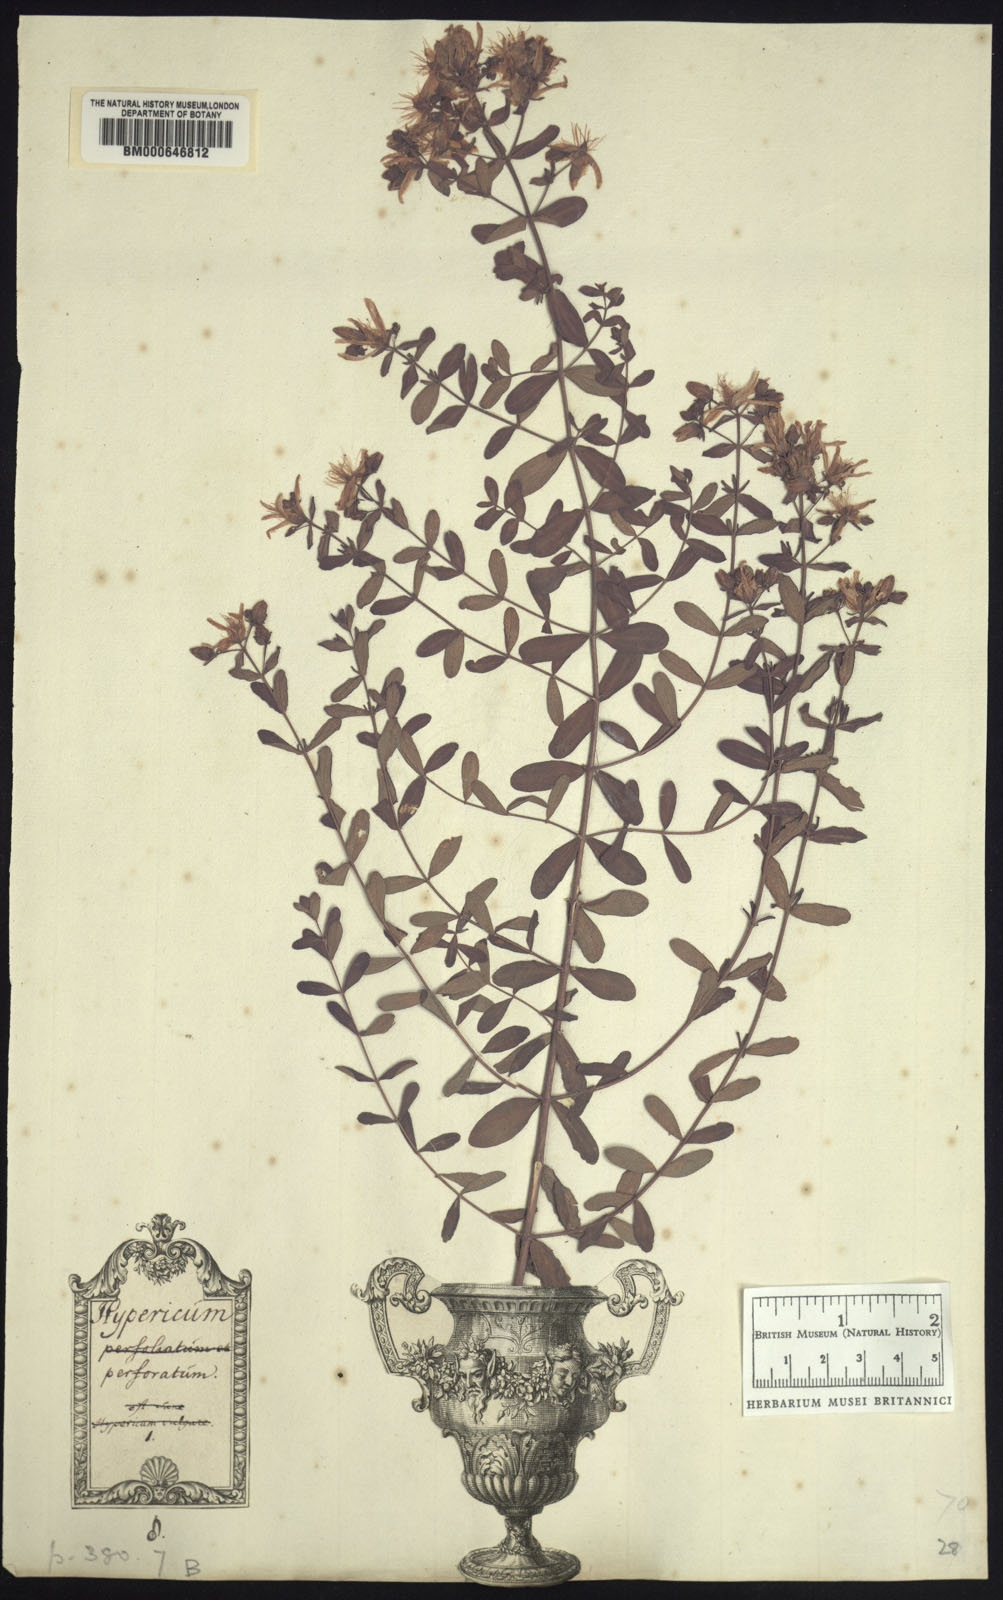 THE NATURAL HISTORY MUSEUM, LONDON
DEPARTMENT OF BOTANY
BM000646812
Hypericum
perfoliatum
perforatum.
Hypericum vulgare.
1.
1 2
BRITISH MUSEUM (NATURAL HISTORY)
1 2 3 4 5
HERBARIUM MUSEI BRITANNICI
p. 380. 7 B
70
28